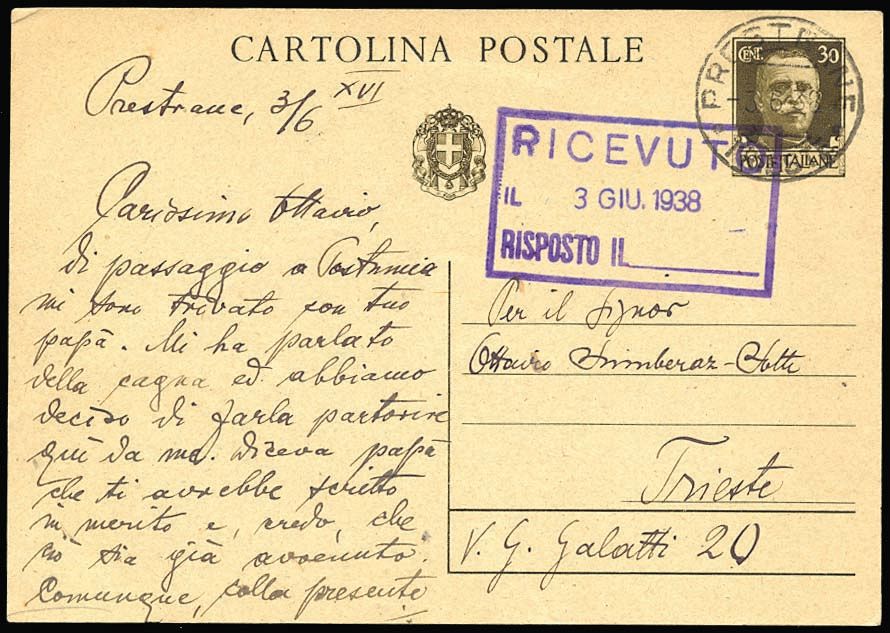 CARTOLINA POSTALE
CENT. 30
POSTE ITALIANE
Prestrane, 3/6 XVI
RICEVUTO
IL 3 GIU. 1938
RISPOSTO IL
Carissimo Ottavio,
di passaggio a Postumia
mi sono trovato con tuo
papà. Mi ha parlato
della cagna ed abbiamo
deciso di farla partorire
quì da me. Diceva papà
che ti avrebbe scritto
in merito e, credo, che
ciò sia già avvenuto.
Comunque, colla presente
Per il Signor
Ottavio
Trieste
V. G. Galatti 20